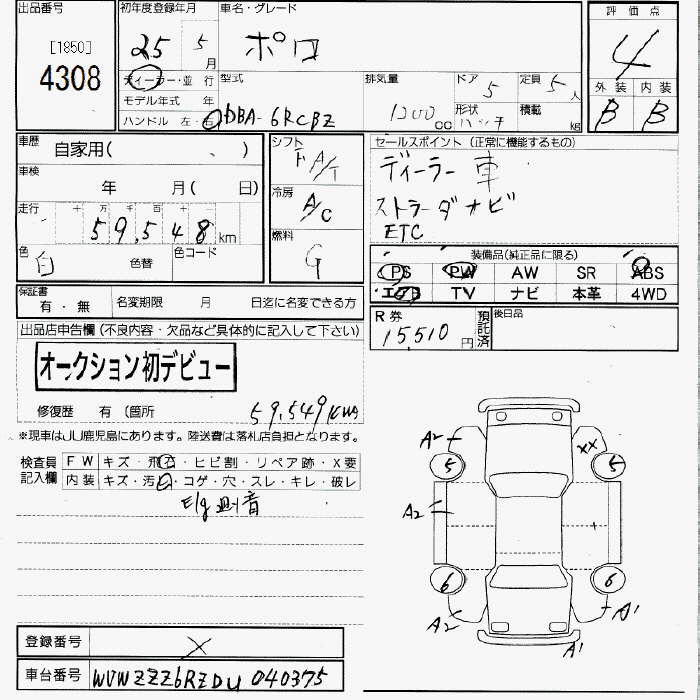 出品番号
[1850]
4308
初年度登録年月
25 5月
ディーラー・並行
モデル年式 年
ハンドル 左・右
車名・グレード
ポロ
型式
DBA-6RCBZ
排気量
1200 CC
ドア 5
形状 ハッチ
定員 5人
積載 kg
評価点
4
外装 内装
B B
車歴
自家用( 、 )
車検
年 月( 日)
走行
十 万 千 百 十
59,548 km
色 白 色替 色コード
シフト
F A/T
冷房
A/C
燃料
G
セールスポイント(正常に機能するもの)
ディーラー車
ストラーダナビ
ETC
装備品(純正品に限る)
PS PW AW SR ABS
エアB TV ナビ 本革 4WD
保証書
有・無
名変期限 月 日迄に名変できる方
R券
15,510円
預託済
後日品
出品店申告欄(不良内容・欠品など具体的に記入して下さい)
オークション初デビュー
修復歴 有 (箇所
59,549
※現車はJU鹿児島にあります。陸送費は落札店負担となります。
検査員記入欄
FW キズ・飛石・ヒビ割・リペア跡・X要
内装 キズ・汚れ・コゲ・穴・スレ・キレ・破レ
E/g 異音
A2 XX
5 5
A2
6 6
A2 A1
A1
登録番号 X
車台番号 WVWZZZ6RZDU040375